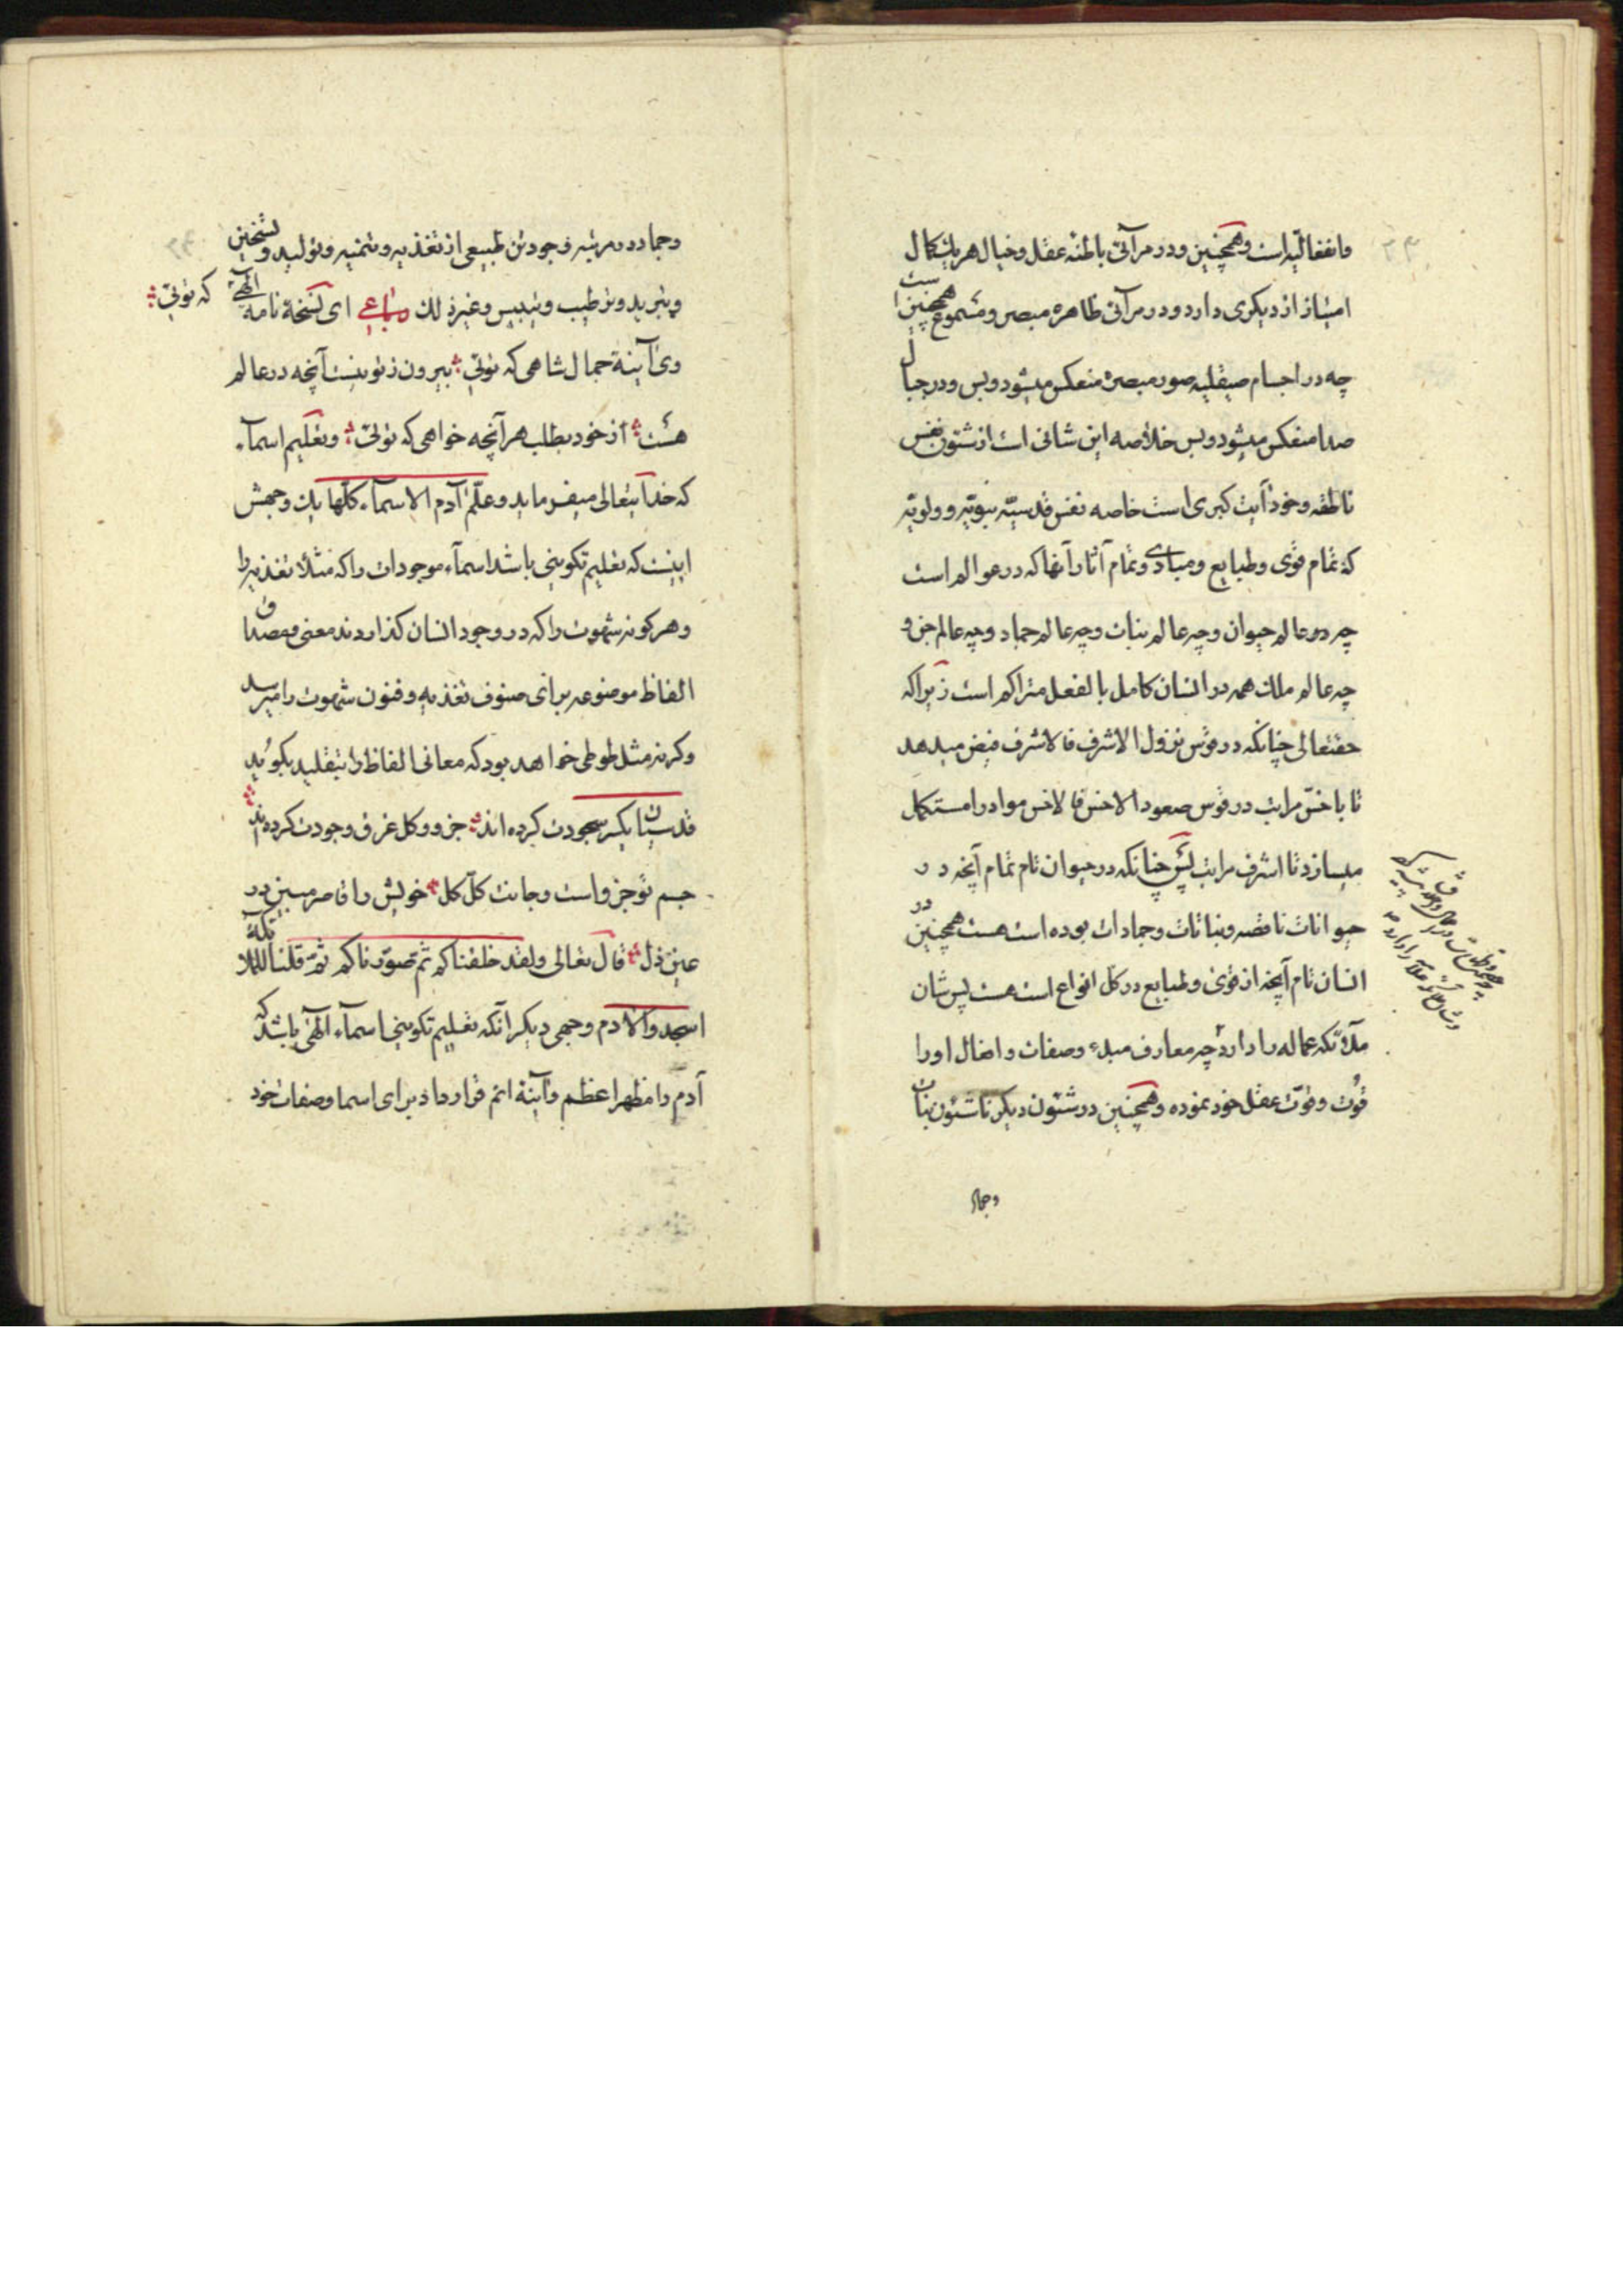 وانفعالیه است و همچنین و در مرآتی باطنه عقل و خیال هر یک کمال
امتیاز از دیگری دارد و در مرآتی ظاهره مبصر و مسموع همچنین است
چه در اجسام صیقلیه صور مبصره منعکس میشود و بس و در جبال
صدا منعکس میشود و بس خلاصه این شانی است از شئون نفس
ناطقه و خود آیت کبری است خاصه نفس قدسیّه نبویّه و ولویّه
که تمام قوی و طبایع و مبادی و تمام آثار آنها که در عوالم است
چه در عالم حیوان و چه عالم نبات و چه عالم جماد و چه عالم جن و
چه عالم ملک همه در انسان کامل بالفعل متراکم است زیرا که
حقتعالی چنانکه در قوس نزول الاشرف فالاشرف فیض میدهد
تا باخسّ مراتب در قوس صعود الاخس فالاخس مواد را مستکمل
میسازد تا اشرف مراتب پس چنانکه در حیوان تام تمام آنچه در
حیوانات ناقصه و نباتات و جمادات بوده است هست همچنین در
انسان تام آنچه از قوی و طبایع در کل انواع است هست پس شان
ملائکه عماله را دارد چه معارف مبدء و صفات و افعال او را
قوُت و قوّت عقل خود نموده و همچنین در شئون دیگر تا شئون نبات
وجماد
۲۳
وجماد در مرتبه وجودتن طبیعی از تغذیه و تنمیه و تولید و تسخین
و تبرید و ترطیب و تیبیس و غیر ذلک رباعی ای نسخهٔ نامه الهی که توئی
وی آینهٔ جمال شاهی که توئی بیرون ز تو نیست آنچه در عالم
هست از خود بطلب هر آنچه خواهی که توئی و تعلیم اسمآء
که خدایتعالی میفرماید و علّم آدم الاسمآء کلّها یک وجهش
اینست که تعلیم تکوینی باشد اسمآء موجودات را که مثلا تغذیه را
و هرگونه شهوت را که در وجود انسان گذاردند معنی و مصداق
الفاظ موضوعه برای صنوف تغذیه و فنون شهوت را میرسد
وگرنه مثل طوطی خواهد بود که معانی الفاظ را بتقلید بگوید
قدسیان یکسر سجودت کرده‌اند جزو و کل غرق وجودت کرده‌اند
جسم تو جزو است و جانت کلّ کل خویش را قاصر مبین در
عین ذل قال تعالی و لقد خلقناکم ثمّ صوّرناکم ثمّ قلنا للملائکة
اسجدوا لآدم وجهی دیگر آنکه تعلیم تکوینی اسمآء الهی باشد که
آدم را مظهر اعظم و آینهٔ اتم قرار داد برای اسما و صفات خود